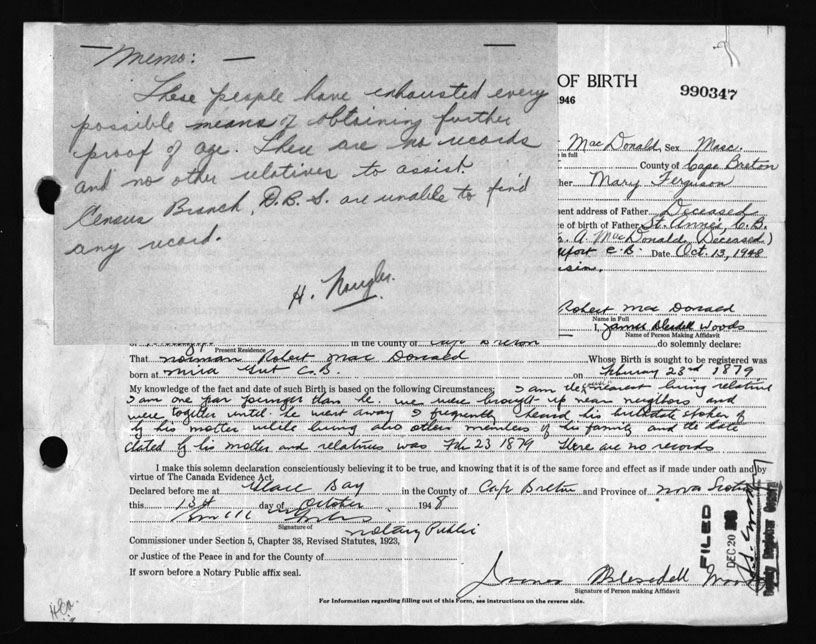 Memo:
These people have exhausted every
possible means of obtaining further
proof of age. There are no records
and no other relatives to assist.
Census Branch, D.B.S. are unable to find
any record.
H. Nougler.
OF BIRTH
1946
990347
MacDonald, Sex Masc.
in full
County of Cape Breton
her Mary Ferguson
ent address of Father Deceased
ce of birth of Father St. Anne's, C.B.
A. MacDonald, Deceased)
C.B. Date Oct. 13, 1948
Robert Mac Donald
Name in Full
I, James Blesdell Woods
Name of Person Making Affidavit
Present Residence in the County of Cape Breton do solemnly declare:
That Norman Robert Mac Donald Whose Birth is sought to be registered was
born at Mira Gut C.B. on Februay 23rd 1879
My knowledge of the fact and date of such Birth is based on the following Circumstances: I am the nearest living relative
I am one year younger than he. we were brought up near neighbors and
were together until he went away I frequently heard his birthdate spoken of
by his mother while living also others members of his family and the date
stated by his mother and relatives was Feb 23 1879 There are no records
I make this solemn declaration conscientiously believing it to be true, and knowing that it is of the same force and effect as if made under oath and by
virtue of The Canada Evidence Act.
Declared before me at Glace Bay in the County of Cape Breton and Province of Nova Scotia
this 13th day of October 1948
Signature of
Notary Public
Commissioner under Section 5, Chapter 38, Revised Statutes, 1923,
or Justice of the Peace in and for the County of
If sworn before a Notary Public affix seal.
James Blesdell Woods
Signature of Person making Affidavit
For Information regarding filling out of this Form, see instructions on the reverse side.
FILED
DEC 20
Deputy Registrar General